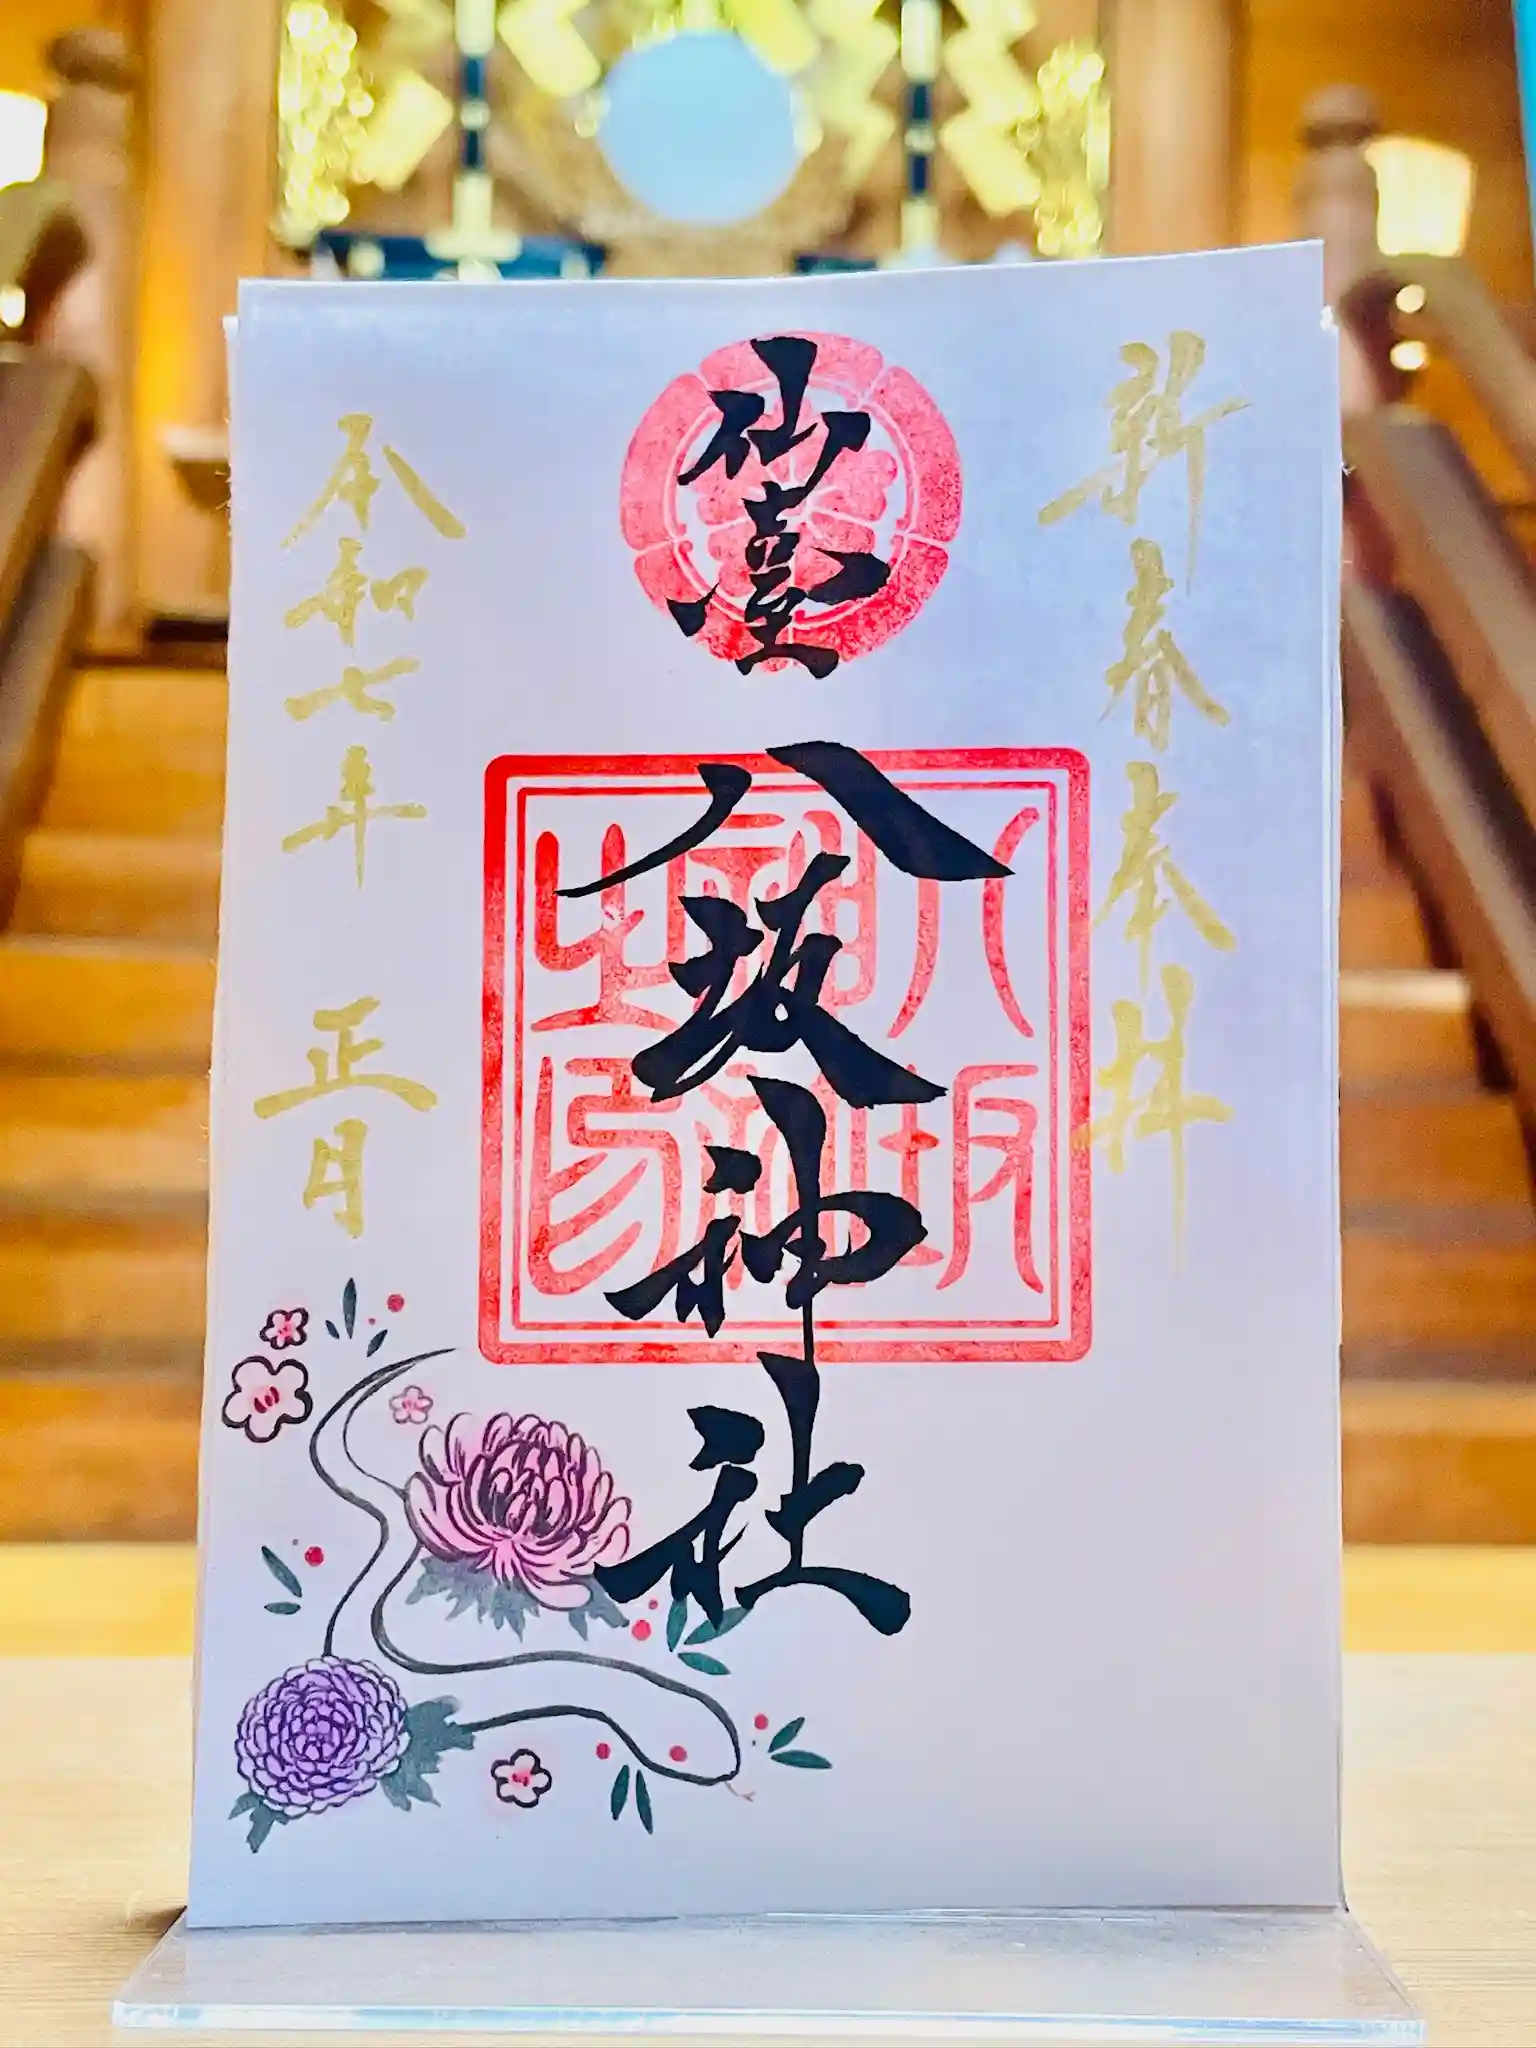 新春奉拝
仙臺
八坂神社
八坂神社之印
令和七年 正月